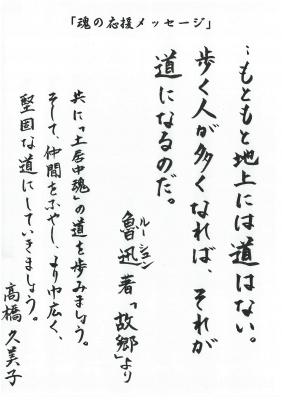 「魂の応援メッセージ」
…もともと地上には道はない。
歩く人が多くなれば、それが
道になるのだ。
魯迅著「故郷」より
ルーシュン
共に「土居中魂」の道を歩みましょう。
そして、仲間をふやし、より広く、
堅固な道にしていきましょう。
高橋久美子